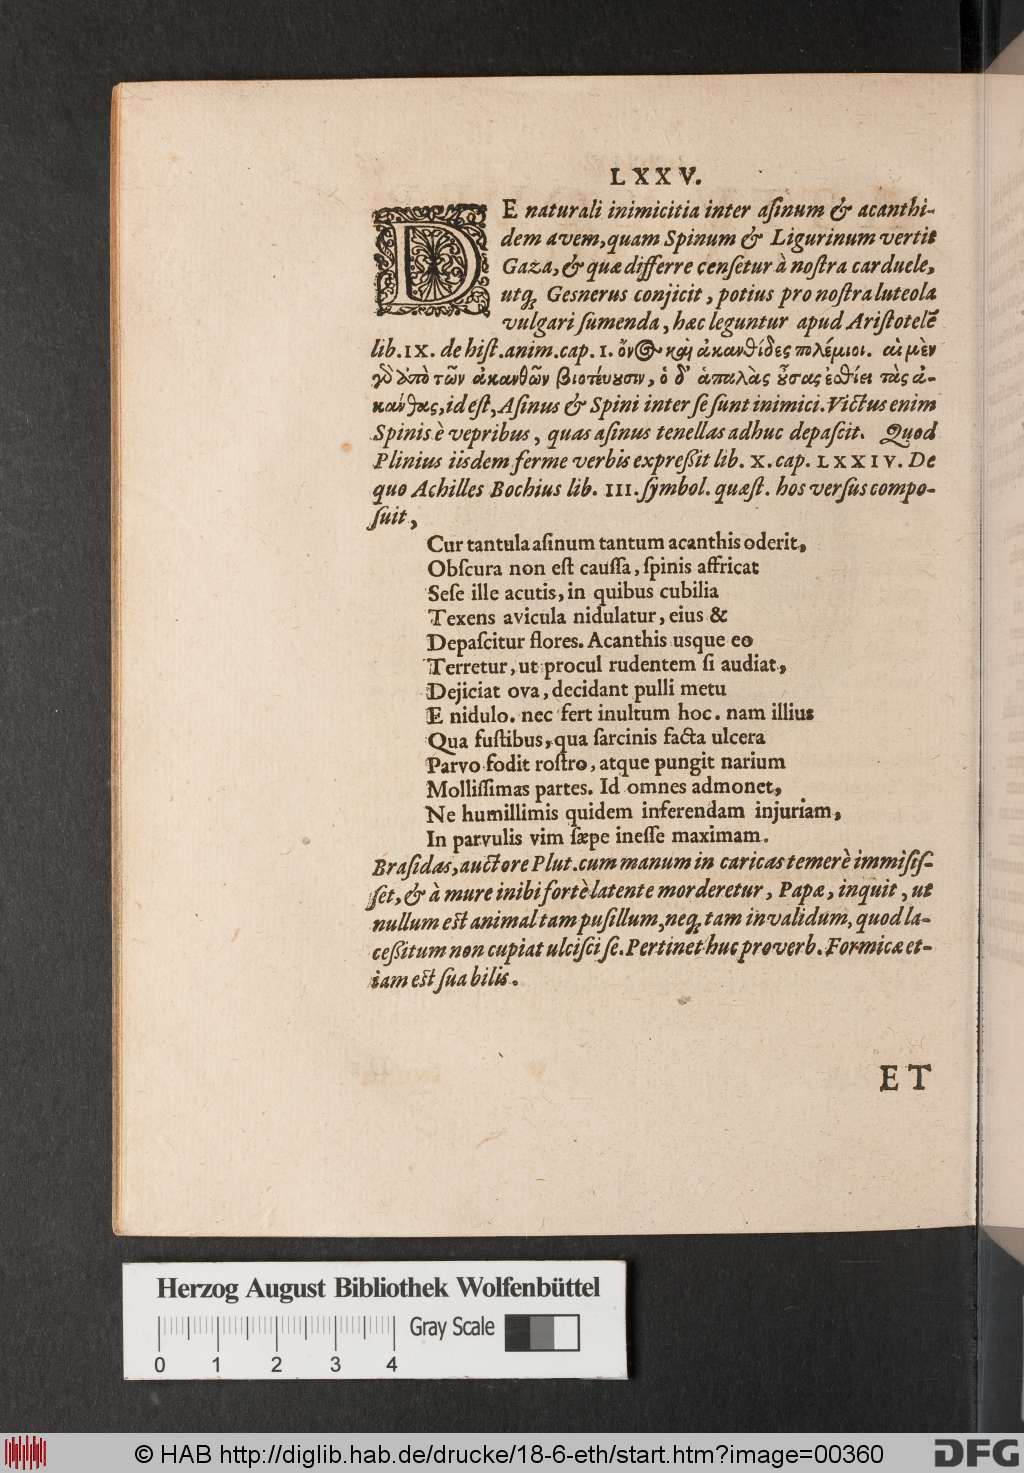 LXXV.
DE naturali inimicitia inter asinum & acanthi-
dem avem, quam Spinum & Ligurinum vertit
Gaza, & quæ differre censetur à nostra carduele,
utq; Gesnerus conjicit, potius pro nostra luteola
vulgari sumenda, hæc leguntur apud Aristotelẽ
lib. IX. de hist. anim. cap. 1. ὄνος καὶ ἀκανθίδες πολέμιοι. αἱ μὲν
γὸ ἀπὸ τῶν ἀκανθῶν βιοτεύουσιν, ὁ δ' ἁπαλὰς οὔσας ἐσθίει τὰς ἀ-
κάνθας, id est, Asinus & Spini inter se sunt inimici. Victus enim
Spinis è vepribus, quas asinus tenellas adhuc depascit. Quod
Plinius iisdem ferme verbis expreßit lib. X. cap. LXXIV. De
quo Achilles Bochius lib. III. symbol. quæst. hos versus compo-
suit,
Cur tantula asinum tantum acanthis oderit,
Obscura non est caussa, spinis affricat
Sese ille acutis, in quibus cubilia
Texens avicula nidulatur, eius &
Depascitur flores. Acanthis usque eo
Terretur, ut procul rudentem si audiat,
Dejiciat ova, decidant pulli metu
E nidulo. nec fert inultum hoc. nam illius
Qua fustibus, qua sarcinis facta ulcera
Parvo fodit rostro, atque pungit narium
Mollissimas partes. Id omnes admonet,
Ne humillimis quidem inferendam injuriam,
In parvulis vim sæpe inesse maximam.
Brasidas, auctore Plut. cum manum in caricas temerè immisis-
set, & à mure inibi fortè latente morderetur, Papæ, inquit, ut
nullum est animal tam pusillum, neq; tam invalidum, quod la-
ceßitum non cupiat ulcisci se. Pertinet huc proverb. Formicæ et-
iam est sua bilis.
ET
Herzog August Bibliothek Wolfenbüttel
Gray Scale
0 1 2 3 4
© HAB http://diglib.hab.de/drucke/18-6-eth/start.htm?image=00360
DFG